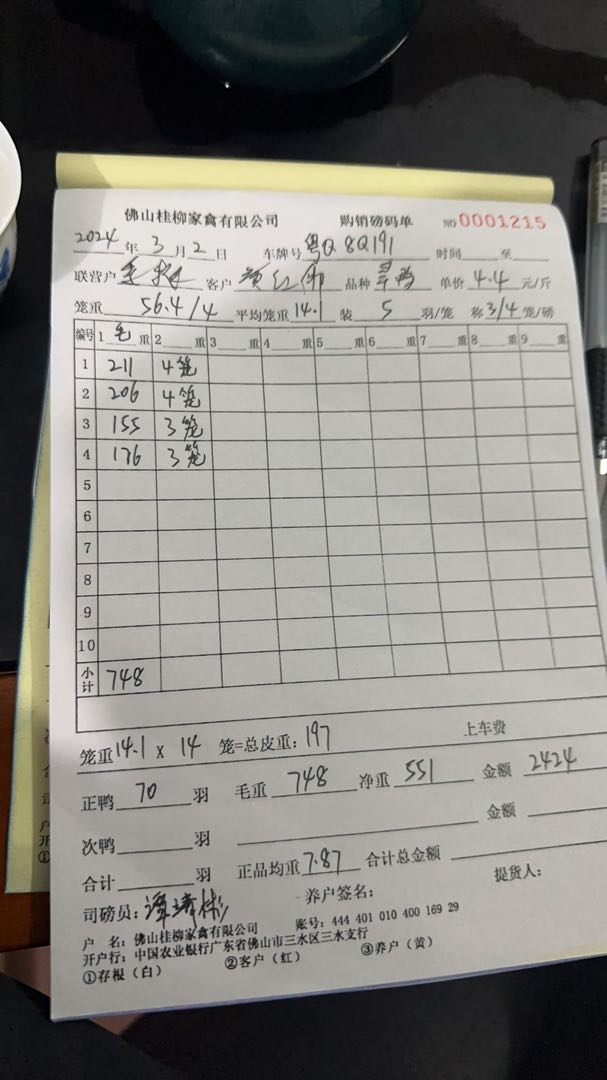 佛山桂柳家禽有限公司 购销磅码单 NO 0001215
2024年3月2日 车牌号 粤Q8Q191 时间 至
联营户 客户 黄红伟 品种 单价 4.4 元/斤
笼重 56.4/4 平均笼重 14.1 装 5 羽/笼 称 3/4 笼/磅
编号 1 毛 重 2 重 3 重 4 重 5 重 6 重 7 重 8 重 9 重
1 211 4笼
2 206 4笼
3 155 3笼
4 176 3笼
5
6
7
8
9
10
小计 748
笼重 14.1 x 14 笼=总皮重: 197 上车费
正鸭 70 羽 毛重 748 净重 551 金额 2424
次鸭 羽 金额
合计 羽 正品均重 7.87 合计总金额
司磅员: 谭 彬 养户签名: 提货人:
户 名: 佛山桂柳家禽有限公司 账号: 444 401 010 400 169 29
开户行: 中国农业银行广东省佛山市三水区三水支行
①存根（白） ②客户（红） ③养户（黄）